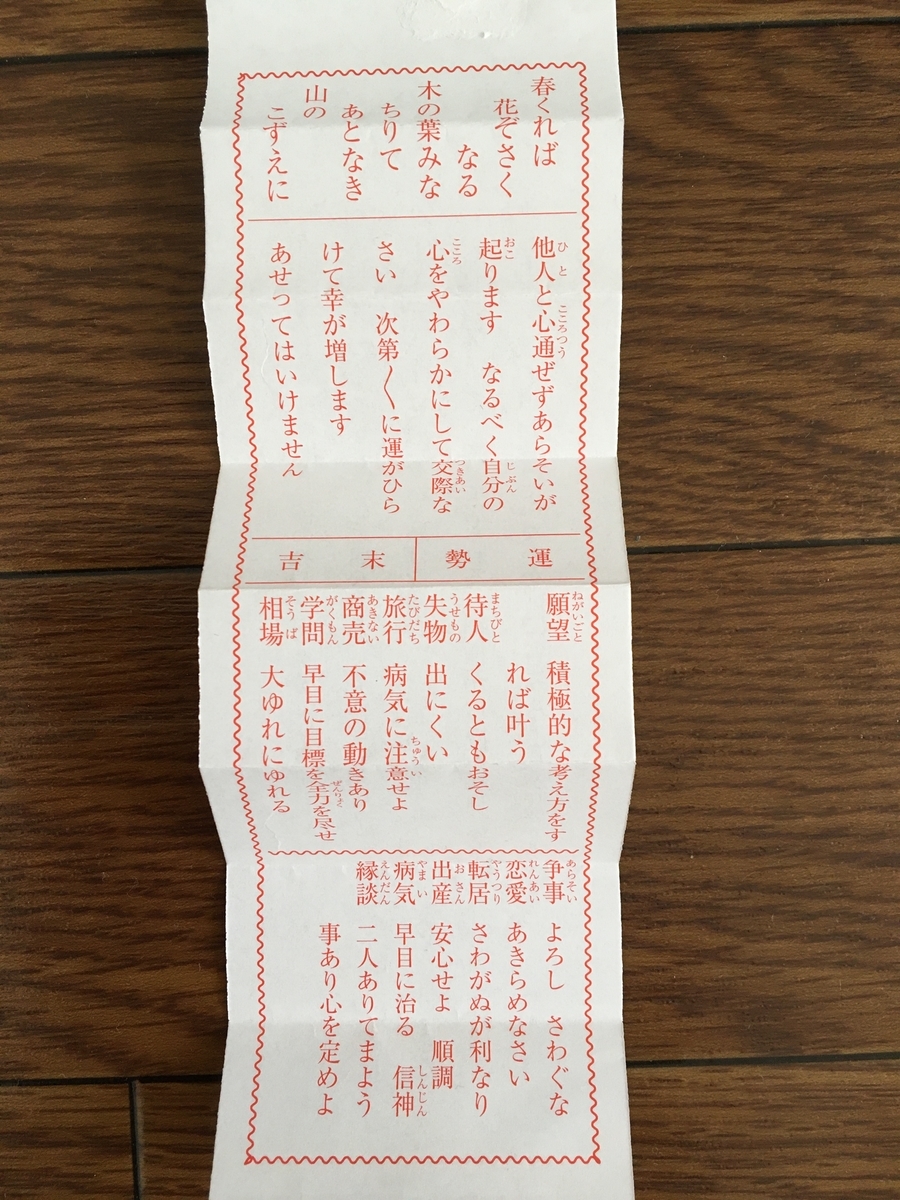 春くれば
花ぞさく
なる
木の葉みな
ちりて
あとなき
山の
こずえに
他人と心通ぜずあらそいが
起ります なるべく自分の
心をやわらかにして交際な
さい 次第〱に運がひら
けて幸が増します
あせってはいけません
運勢
末吉
願望 積極的な考え方をす
れば叶う
待人 くるともおそし
失物 出にくい
旅行 病気に注意せよ
商売 不意の動きあり
学問 早目に目標を全力を尽せ
相場 大ゆれにゆれる
争事 よろし さわぐな
恋愛 あきらめなさい
転居 さわがぬが利なり
出産 安心せよ 順調
病気 早目に治る 信神
縁談 二人ありてまよう
事あり心を定めよ